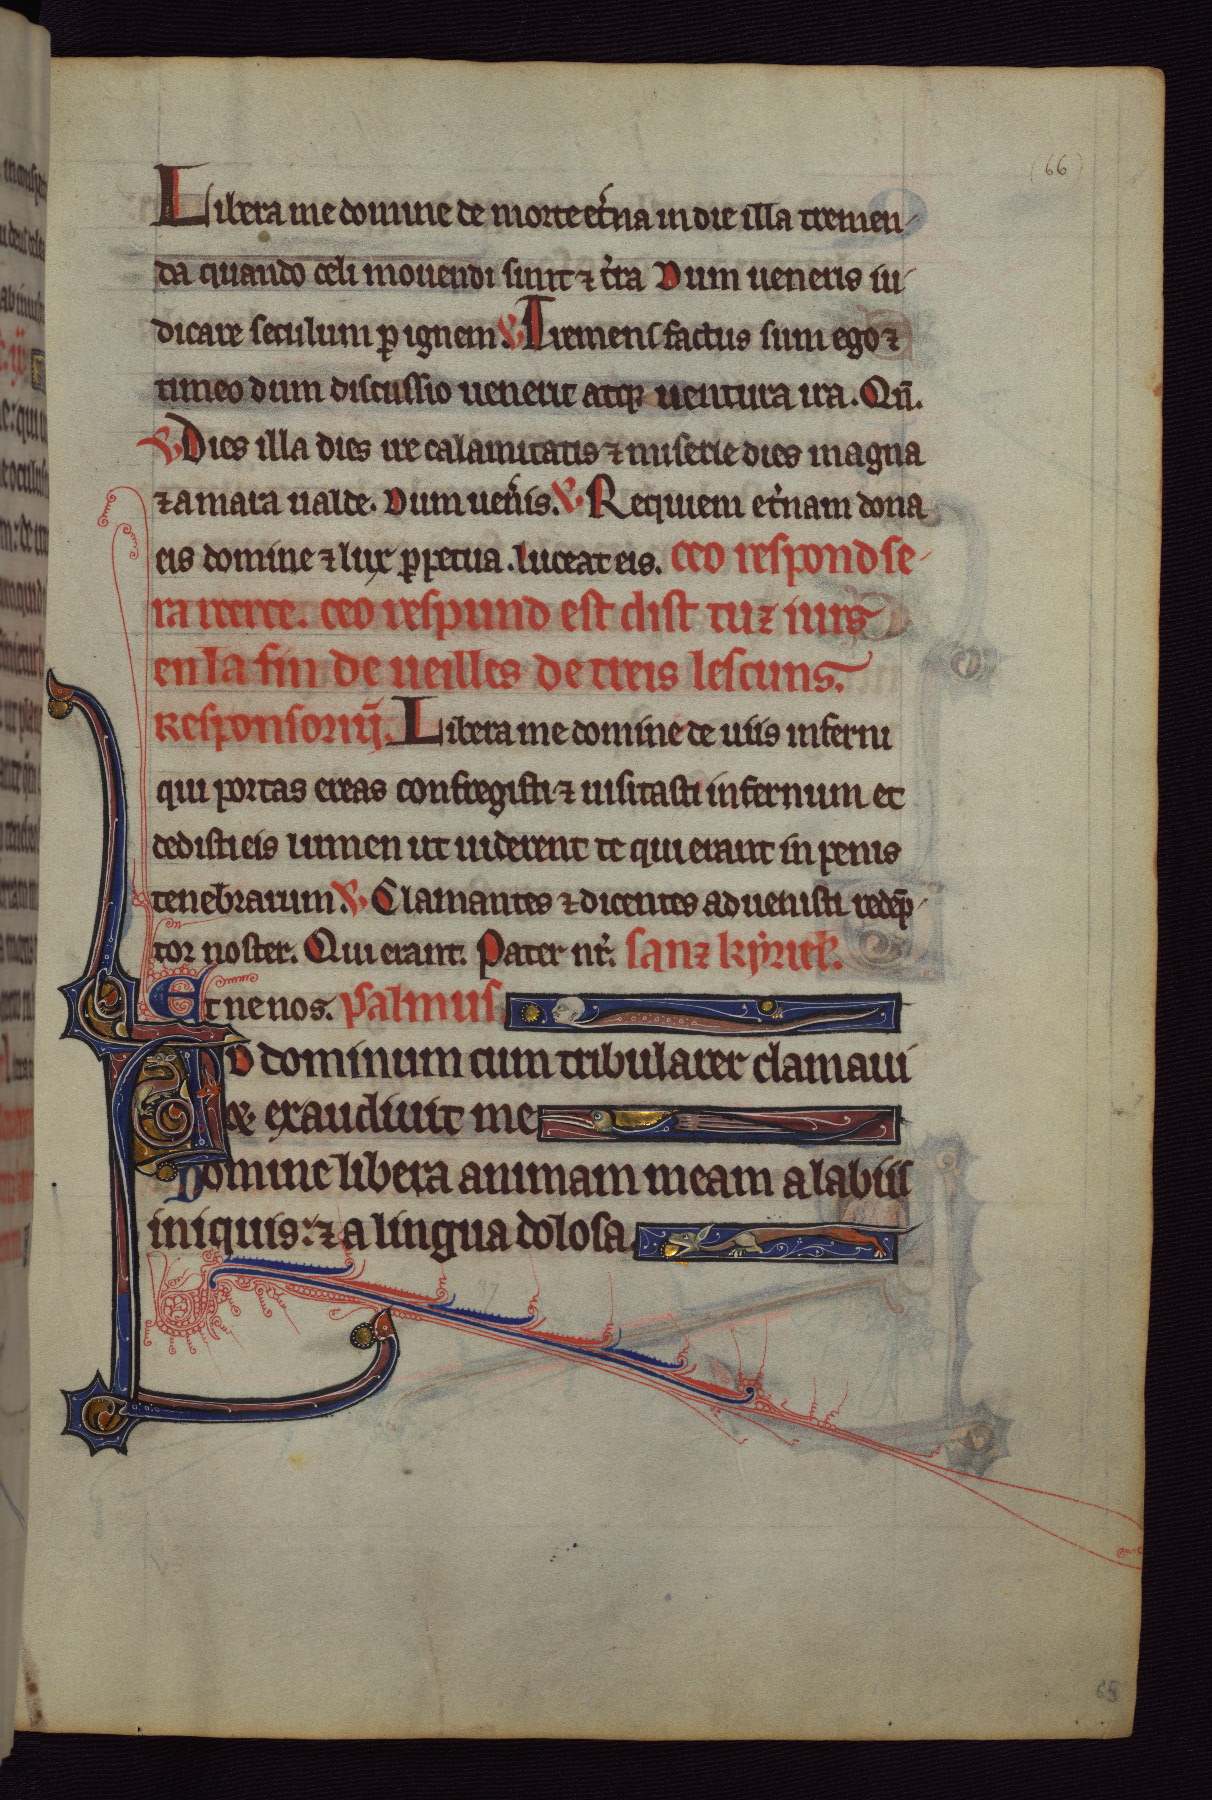 (66)
Libera me domine de morte et̾na in die illa tremen-
da quando celi mouendi sunt ⁊ t̾ra Dum ueneris iu-
dicare seculum ꝑ ignem. ℣ Tremens factus sum ego ⁊
timeo dum discussio uenerit atqꝫ uentura ira. Qn̄.
℣ Dies illa dies ire calamitatis ⁊ miserie dies magna
⁊ amara ualde. Dum uen̾is. ℣ Requiem et̾nam dona
eis domine ⁊ lux ꝑpetua luceat eis. ceo respond se-
ra recte. ceo respund est dist tuz iurs
en la fin de ueilles de treis lescuns.
Responsoriū. Libera me domine de uiis inferni
qui portas ereas confregisti ⁊ uisitasti infernum et
dedisti eis lumen ut uiderent te qui erant in penis
tenebrarum. ℣ Clamantes ⁊ dicentes aduenisti redēp-
tor noster. Qui erant. Pater nr̄. sanz kyriel.
Et ne nos. psalmus
AD dominum cum tribularer clamaui
⁊ exaudiuit me
Domine libera animam meam a labiis
iniquis: ⁊ a lingua dolosa
65